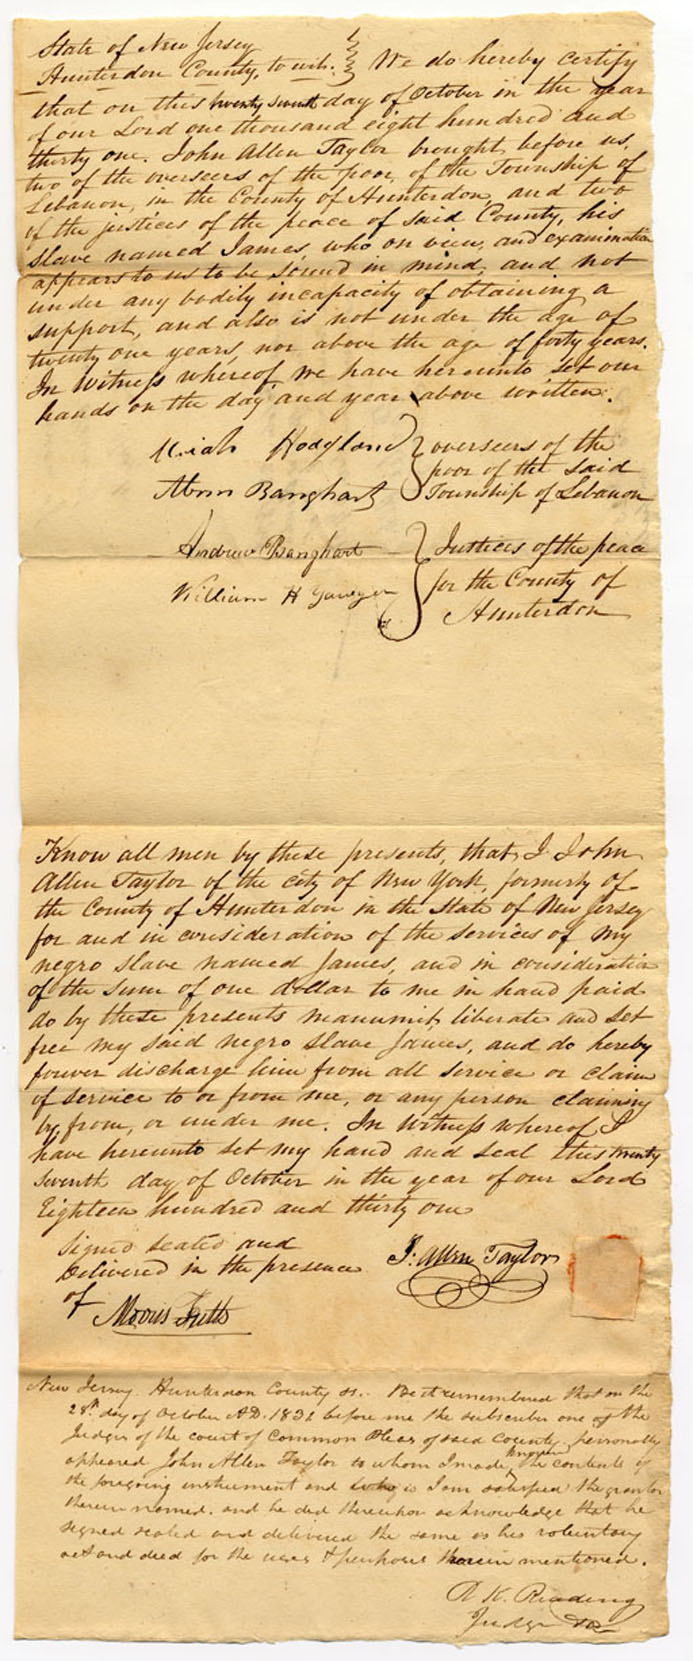 State of New Jersey
Hunterdon County, to wit. We do hereby certify
that on this twenty seventh day of October in the year
of our Lord one thousand eight hundred and
thirty one. John Allen Taylor brought before us,
two of the overseers of the poor, of the Township of
Lebanon, in the County of Hunterdon, and two
of the justices of the peace of said County, his
slave named James, who on view, and examination
appears to us to be sound in mind, and not
under any bodily incapacity of obtaining a
support, and also is not under the age of
twenty one years, nor above the age of forty years.
In Witness whereof, we have hereunto set our
hands on the day and year above written.
Uriah Hoagland
Abm Banghart
overseers of the
poor of the said
Township of Lebanon
Andrew Banghart
William H
Justices of the peace
for the County of
Hunterdon
Know all men by these presents, that, I John
Allen Taylor of the city of New York, formerly of
the County of Hunterdon in the State of New Jersey
for and in consideration of the services of my
negro slave named James, and in consideration
of the sum of one dollar to me in hand paid
do by these presents manumit, liberate and set
free my said negro slave James, and do hereby
forever discharge him from all service or claim
of service to or from me, or any person claiming
by, from, or under me. In Witness whereof I
have hereunto set my hand and seal this twenty
seventh day of October in the year of our Lord
Eighteen hundred and thirty one
Signed sealed and
delivered in the presence
of
J. Allen Taylor
Morris Fritts
New Jersey Hunterdon County ss. Be it remembered that on the
28th day of October AD. 1831 before me the subscriber one of the
Judges of the court of Common Pleas of said County personally
appeared John Allen Taylor to whom I made known the contents of
the foregoing instrument and who is I am satisfied the grantor
therein named. and he did thereupon acknowledge that he
signed sealed and delivered the same as his voluntary
act and deed for the uses & purposes therein mentioned.
R K. Reading
Judge